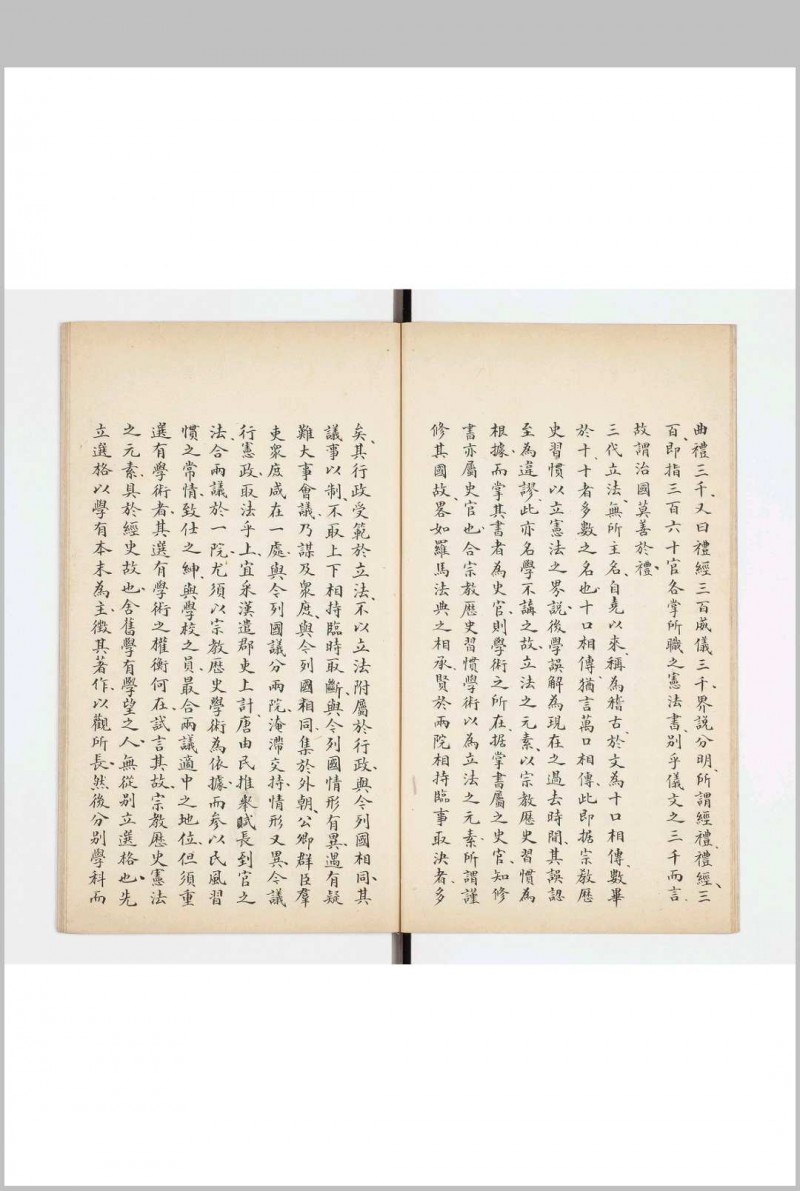 曲禮三千、又曰禮經三百威儀三千、界說分明、所謂經禮、禮經、三
百、即指三百六十官各掌所職之憲法書、別乎儀文之三千而言、
故謂治國莫善於禮、
三代立法、無所主名、自堯以來、稱為稽古、於文為十口相傳、數畢
於十、十者多數之名也、十口相傳、猶言萬口相傳、此即据宗教歷
史習慣以立憲法之界說、後學誤解為現在之過去時間、其誤認
至為違謬、此亦名學不講之故、立法之元素、以宗教歷史習慣為
根據、而掌其書者為史官、則學術之所在、据掌書屬之史官、知修
書亦屬史官也、合宗教歷史習慣學術以為立法之元素、所謂謹
修其國故、畧如羅馬法典之相承、賢於兩院相持臨事取決者多
矣、其行政受範於立法、不以立法附屬於行政、與今列國相同、其
議事以制、不取上下相持臨時取斷、與今列國情形有異、遇有疑
難大事會議、乃謀及眾庶、與今列國相同、集於外朝、公卿群臣羣
吏眾庶咸在一處、與今列國議分兩院、淹滯交持、情形又異、今議
行憲政、取法乎上、宜采漢遣郡吏上計、唐由民推舉賦長到官之
法、合兩議於一院、尤須以宗教歷史學術為依據、而參以民風習
慣之常情、致仕之紳、與學校之員、最合兩議適中之地位、但須重
選有學術者、其選有學術之權衡何在、試言其故、宗教歷史憲法
之元素、具於經史故也、舍舊學有學望之人、無從別立選格也、先
立選格、以學有本末為主、徵其著作、以觀所長、然後分別學科、而